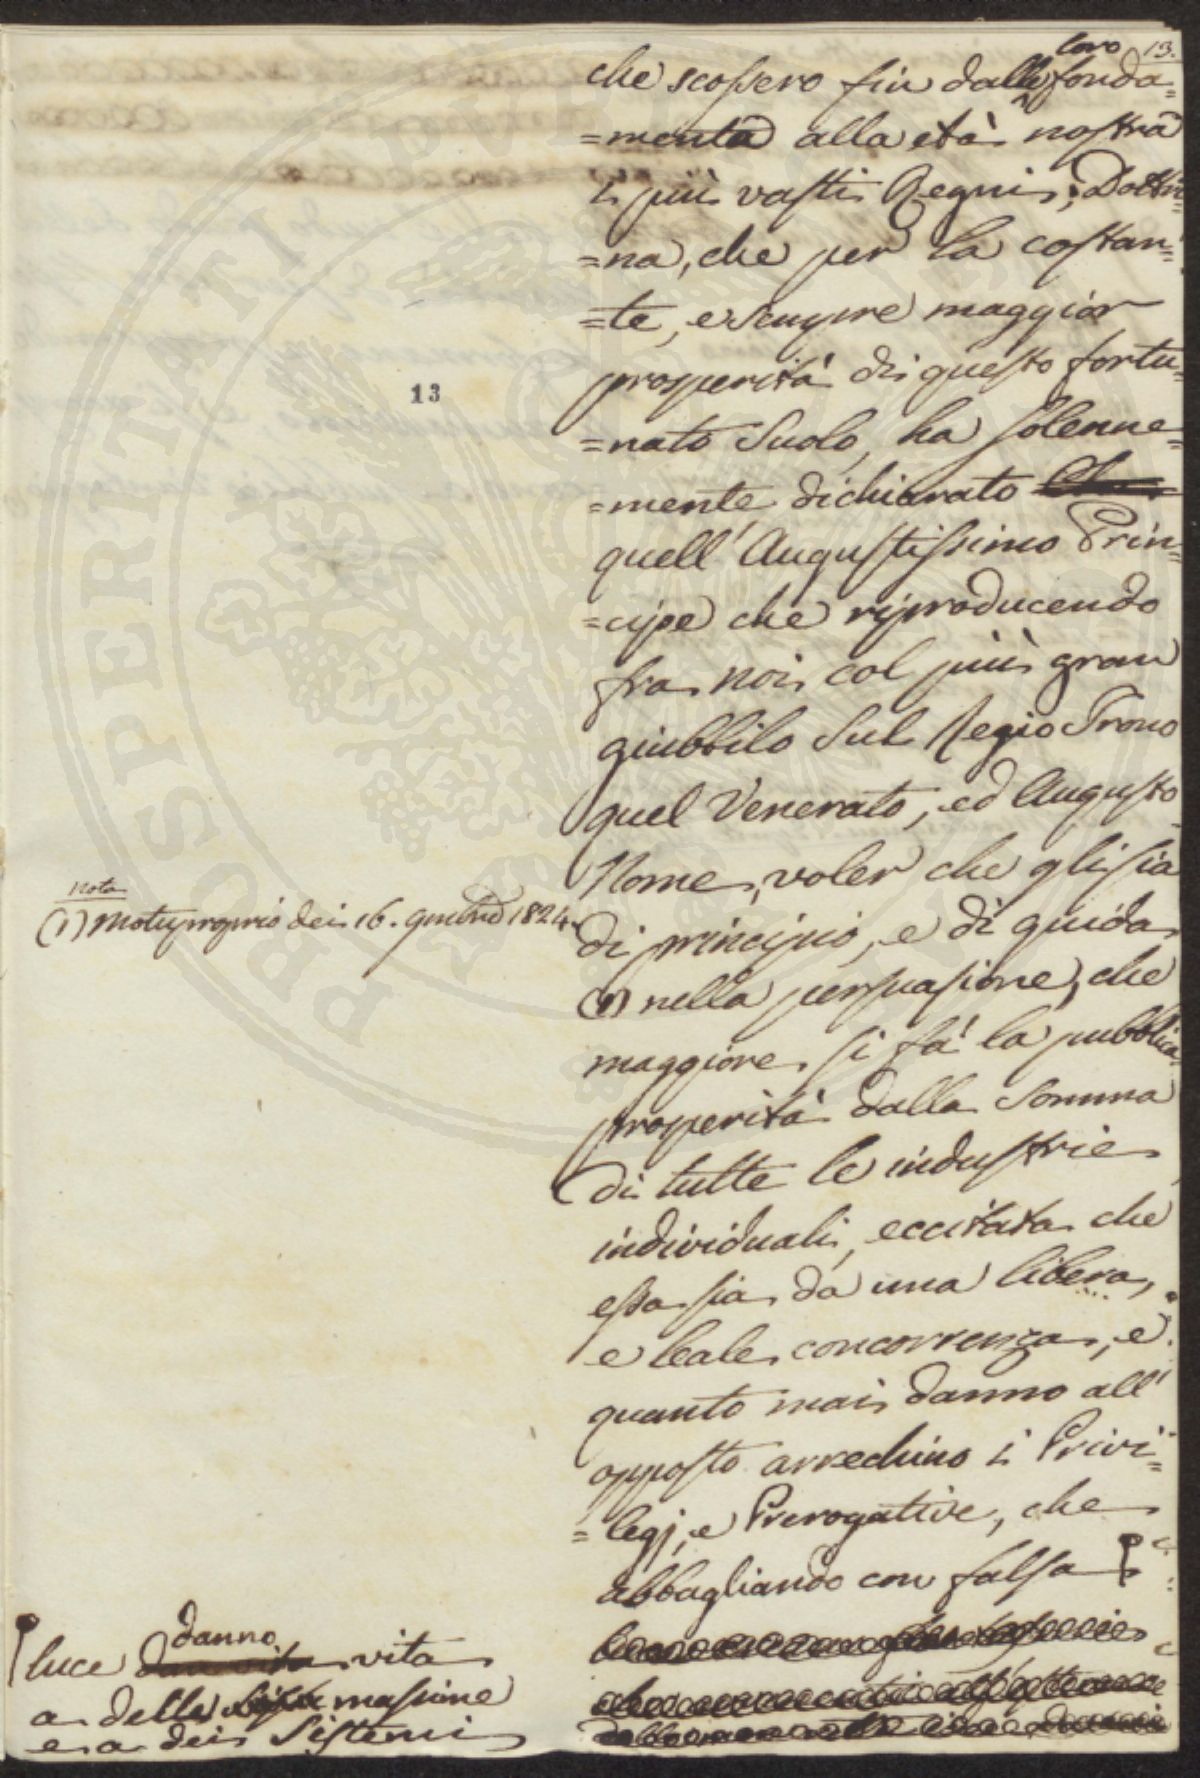 13.
loro
che scossero fin dalle fonda=
=menta alla età nostra
i più vasti Regni; Dottri=
=na, che per la costan=
=te, e sempre maggior
prosperità di questo fortu=
=nato Suolo, ha solenne=
=mente dichiarato
quell'Augustissimo Prin=
=cipe che riproducendo
fra noi col più gran
giubbilo sul Regio Trono
quel Venerato, ed Augusto
Nome, voler che gli sia
di principio, e di guida
(1) nella persuasione, che
maggiore si fà la pubblica
prosperità dalla somma
di tutte le industrie
individuali, eccitata che
essa sia da una libera,
e leale concorrenza, e
quanto mai danno all'
opposto arrechino i Privi=
=legj, e Prerogative, che
abbagliando con falsa
13
Nota
(1) Motuproprio dei 16. gmbre 1824.
danno
luce vita
a delle massime
e a dei Sistemi
PROSPERITATI PVBLICAE